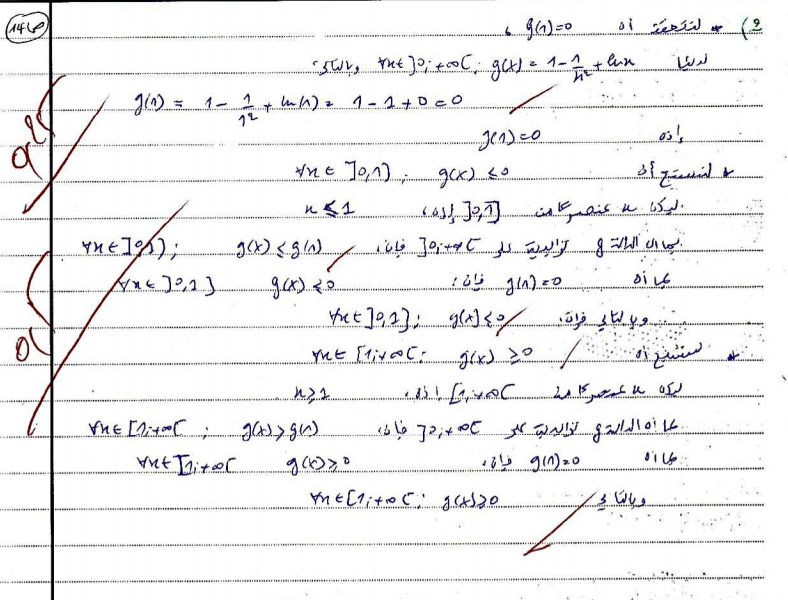 ص14
2) * لنتحقق أن g(1)=0 ،
لدينا ∀x∈]0;+∞[ ; g(x) = 1 - 1/x² + lnx وبالتالي:
g(1) = 1 - 1/1² + ln(1) = 1 - 1 + 0 = 0
إذن g(1)=0
* لنستنتج أن ∀x∈ ]0,1] ; g(x) ≤ 0
ليكن x عنصرا من ]0,1] إذن، x ≤ 1
بما أن الدالة g تزايدية على ]0;+∞[ فإن، ∀x∈]0,1] ; g(x) ≤ g(1)
بما أن g(1)=0 فإن: g(x) ≤ 0 ∀x∈]0,1]
وبالتالي فإن، ∀x∈]0,1] ; g(x) ≤ 0
* لنستنتج أن ∀x∈ [1;+∞[ ; g(x) ≥ 0
ليكن x عنصرا من [1;+∞[ إذن، x ≥ 1
بما أن الدالة g تزايدية على ]0;+∞[ فإن، ∀x∈[1;+∞[ ; g(x) ≥ g(1)
بما أن g(1)=0 فإن، ∀x∈[1;+∞[ g(x) ≥ 0
وبالتالي ∀x∈[1;+∞[ ; g(x) ≥ 0